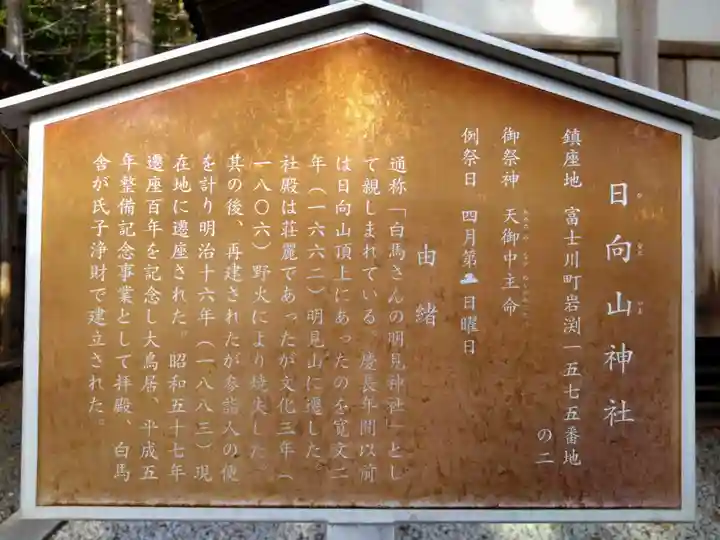 日向山神社
鎮座地 富士川町岩渕一五七五番地
の二
御祭神 天御中主命
例祭日 四月第 日曜日
由緒
通称「白馬さんの明見神社」とし
て親しまれている。慶長年間以前
は日向山頂上にあったのを寛文二
年(一六六二)明見山に遷した。
社殿は荘麗であったが文化三年(
一八〇六)野火により焼失した。
其の後、再建されたが参詣人の便
を計り明治十六年(一八八三)現
在地に遷座された。昭和五十七年
遷座百年を記念し大鳥居、平成五
年整備記念事業として拝殿、白馬
舎が氏子浄財で建立された。